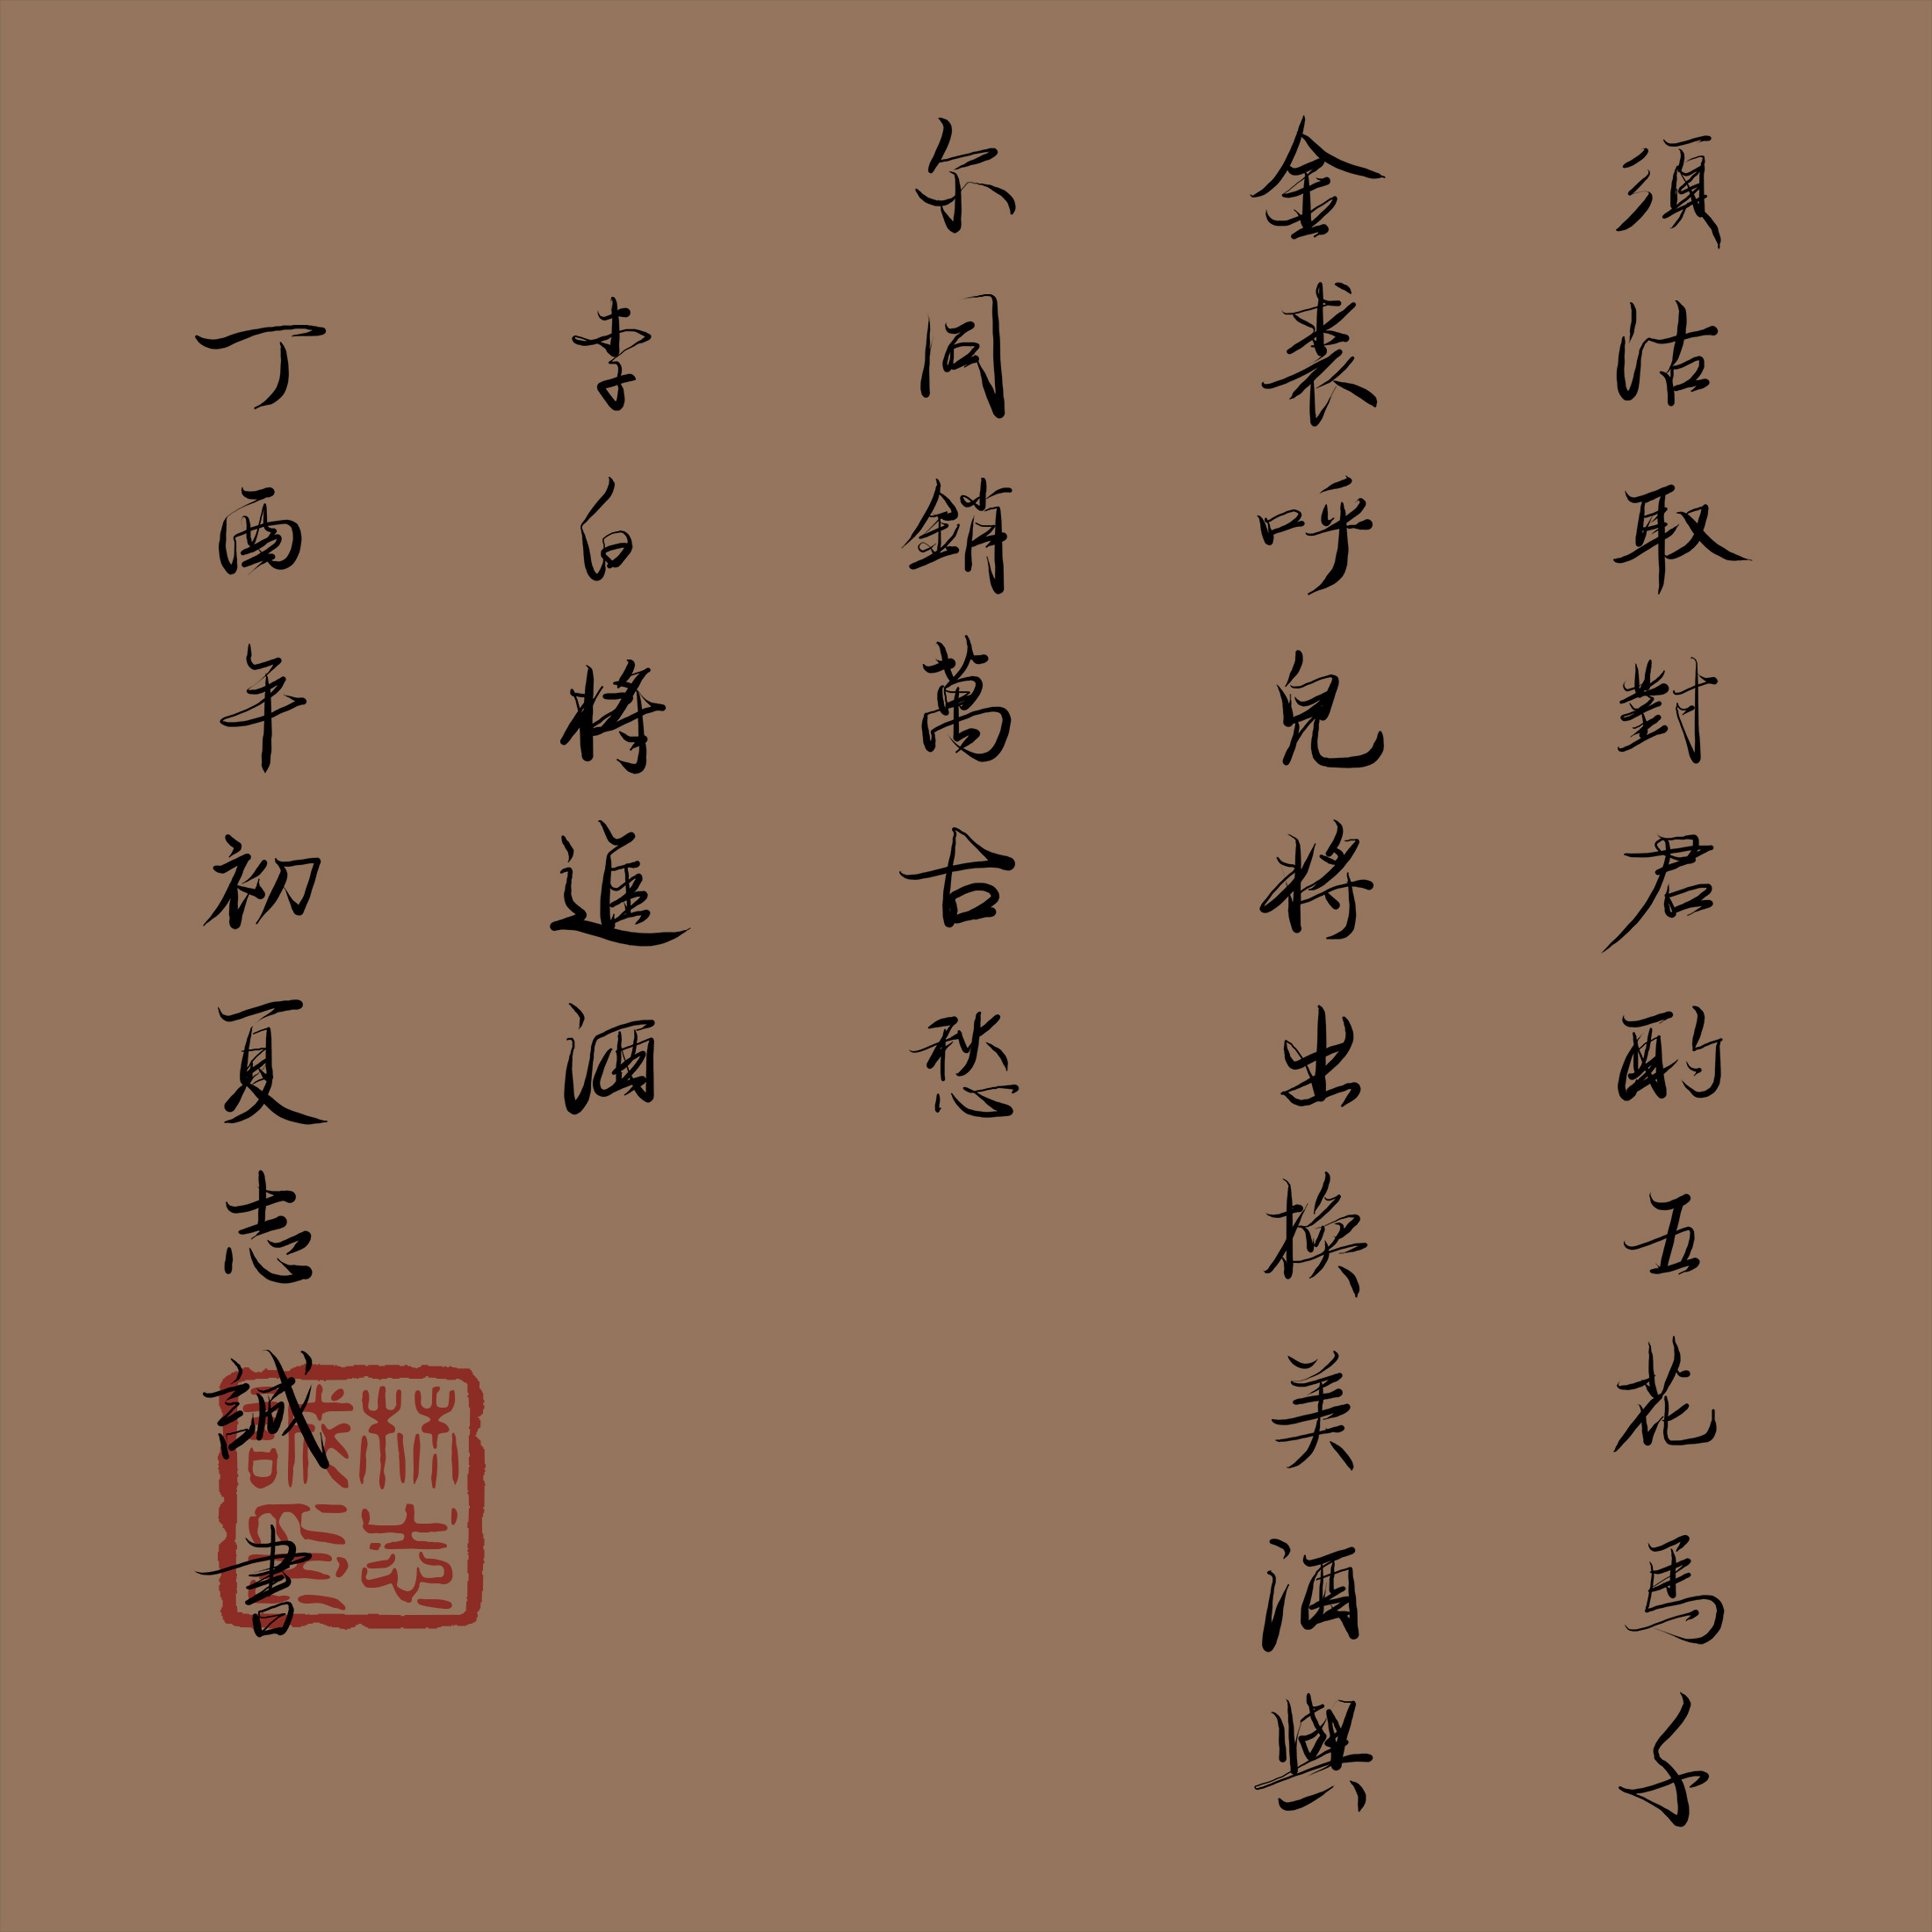 須沽取對君酌五花馬千
金裘呼兒将出換美酒與
尔同銷萬古愁
李白将進酒
丁酉年初夏志誠書